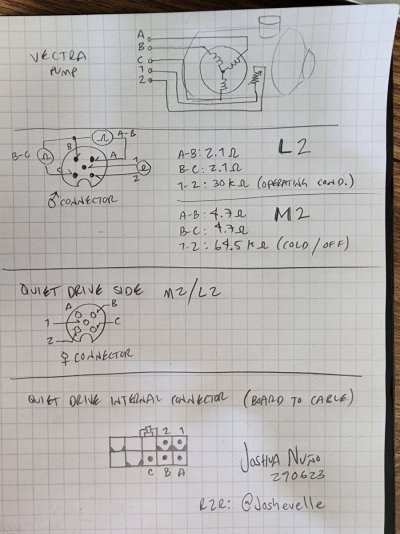 VECTRA
PUMP
A
B
C
1
2
A-B
B-C
Ω
Ω
Ω
B
A
C
1
2
♂ CONNECTOR
A-B: 2.1 Ω L2
B-C: 2.1 Ω
1-2: 30 KΩ (OPERATING COND.)
A-B: 4.7 Ω M2
B-C: 4.7 Ω
1-2: 64.5 KΩ (COLD/OFF)
QUIET DRIVE SIDE M2/L2
A
B
1
C
2
♀ CONNECTOR
QUIET DRIVE INTERNAL CONNECTOR (BOARD TO CABLE)
2 1
C B A
JOSHUA NUÑO
290623
R2R: @Joshevelle